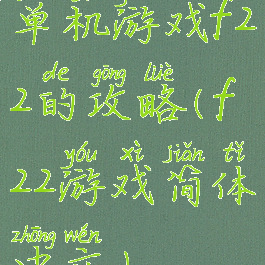 单机游戏f2
de gōng lüè
2的攻略(f
yóu xì jiǎn tǐ
22游戏简体
zhōng wén
中文)